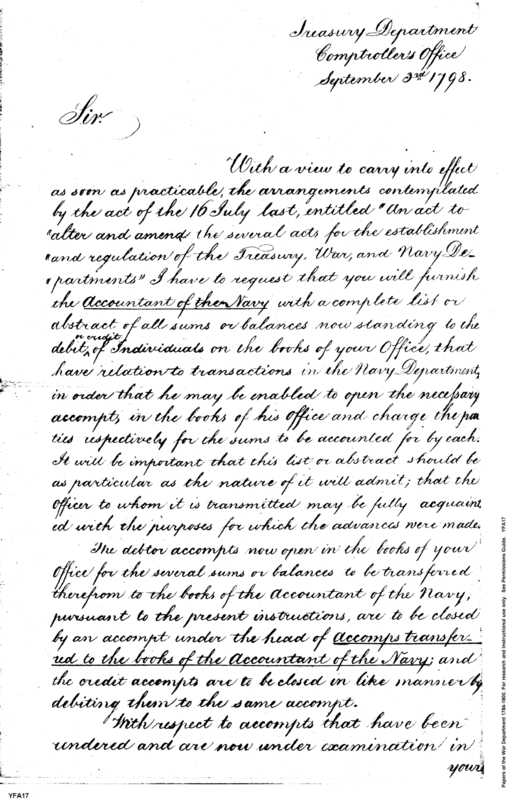 Treasury Department
Comptroller's Office
September 3rd 1798.
Sir.
With a view to carry into effect
as soon as practicable, the arrangements contemplated
by the act of the 16 July last, entitled "An act to
"alter and amend the several acts for the establishment
"and regulation of the Treasury, War, and Navy De-
"partments" I have to request that you will furnish
the Accountant of the Navy with a complete list or
abstract of all sums or balances now standing to the
debit or credit of Individuals on the books of your Office, that
have relation to transactions in the Navy Department,
in order that he may be enabled to open the necessary
accompts, in the books of his Office and charge the par
ties respectively for the sums to be accounted for by each.
It will be important that this list or abstract should be
as particular as the nature of it will admit; that the
Officer to whom it is transmitted may be fully acquaint
ed with the purposes for which the advances were made.
The debtor accompts now open in the books of your
Office for the several sums or balances to be transferred
therefrom to the books of the Accountant of the Navy,
pursuant to the present instructions, are to be closed
by an accompt under the head of Accomps transfer-
red to the books of the Accountant of the Navy; and
the credit accompts are to be closed in like manner by
debiting them to the same accompt.
With respect to accompts that have been
rendered and are now under examination in
your
YFA17
Papers of the War Department 1784-1800. For research and instructional use only. See Permissions Guide. YFA17